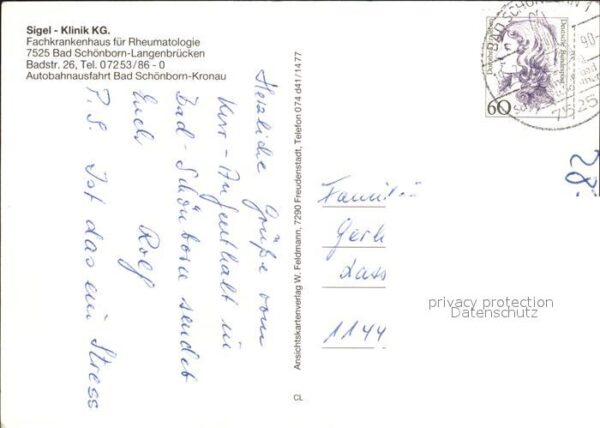 Sigel - Klinik KG.
Fachkrankenhaus für Rheumatologie
7525 Bad Schönborn-Langenbrücken
Badstr. 26, Tel. 07253/86 - 0
Autobahnausfahrt Bad Schönborn-Kronau
Herzliche Grüße vom
Kur-Aufenthalt in
Bad-Schönborn sendet
Euch Rolf
P.S. Ist das ein Stress
Ansichtskartenverlag W. Feldmann, 7290 Freudenstadt, Telefon 07441/1477
CL
Deutsche Bundespost
60
BAD SCHÖNBORN 1
90-
7525
28.-
Famili
Gerh
Lass
1144
privacy protection
Datenschutz